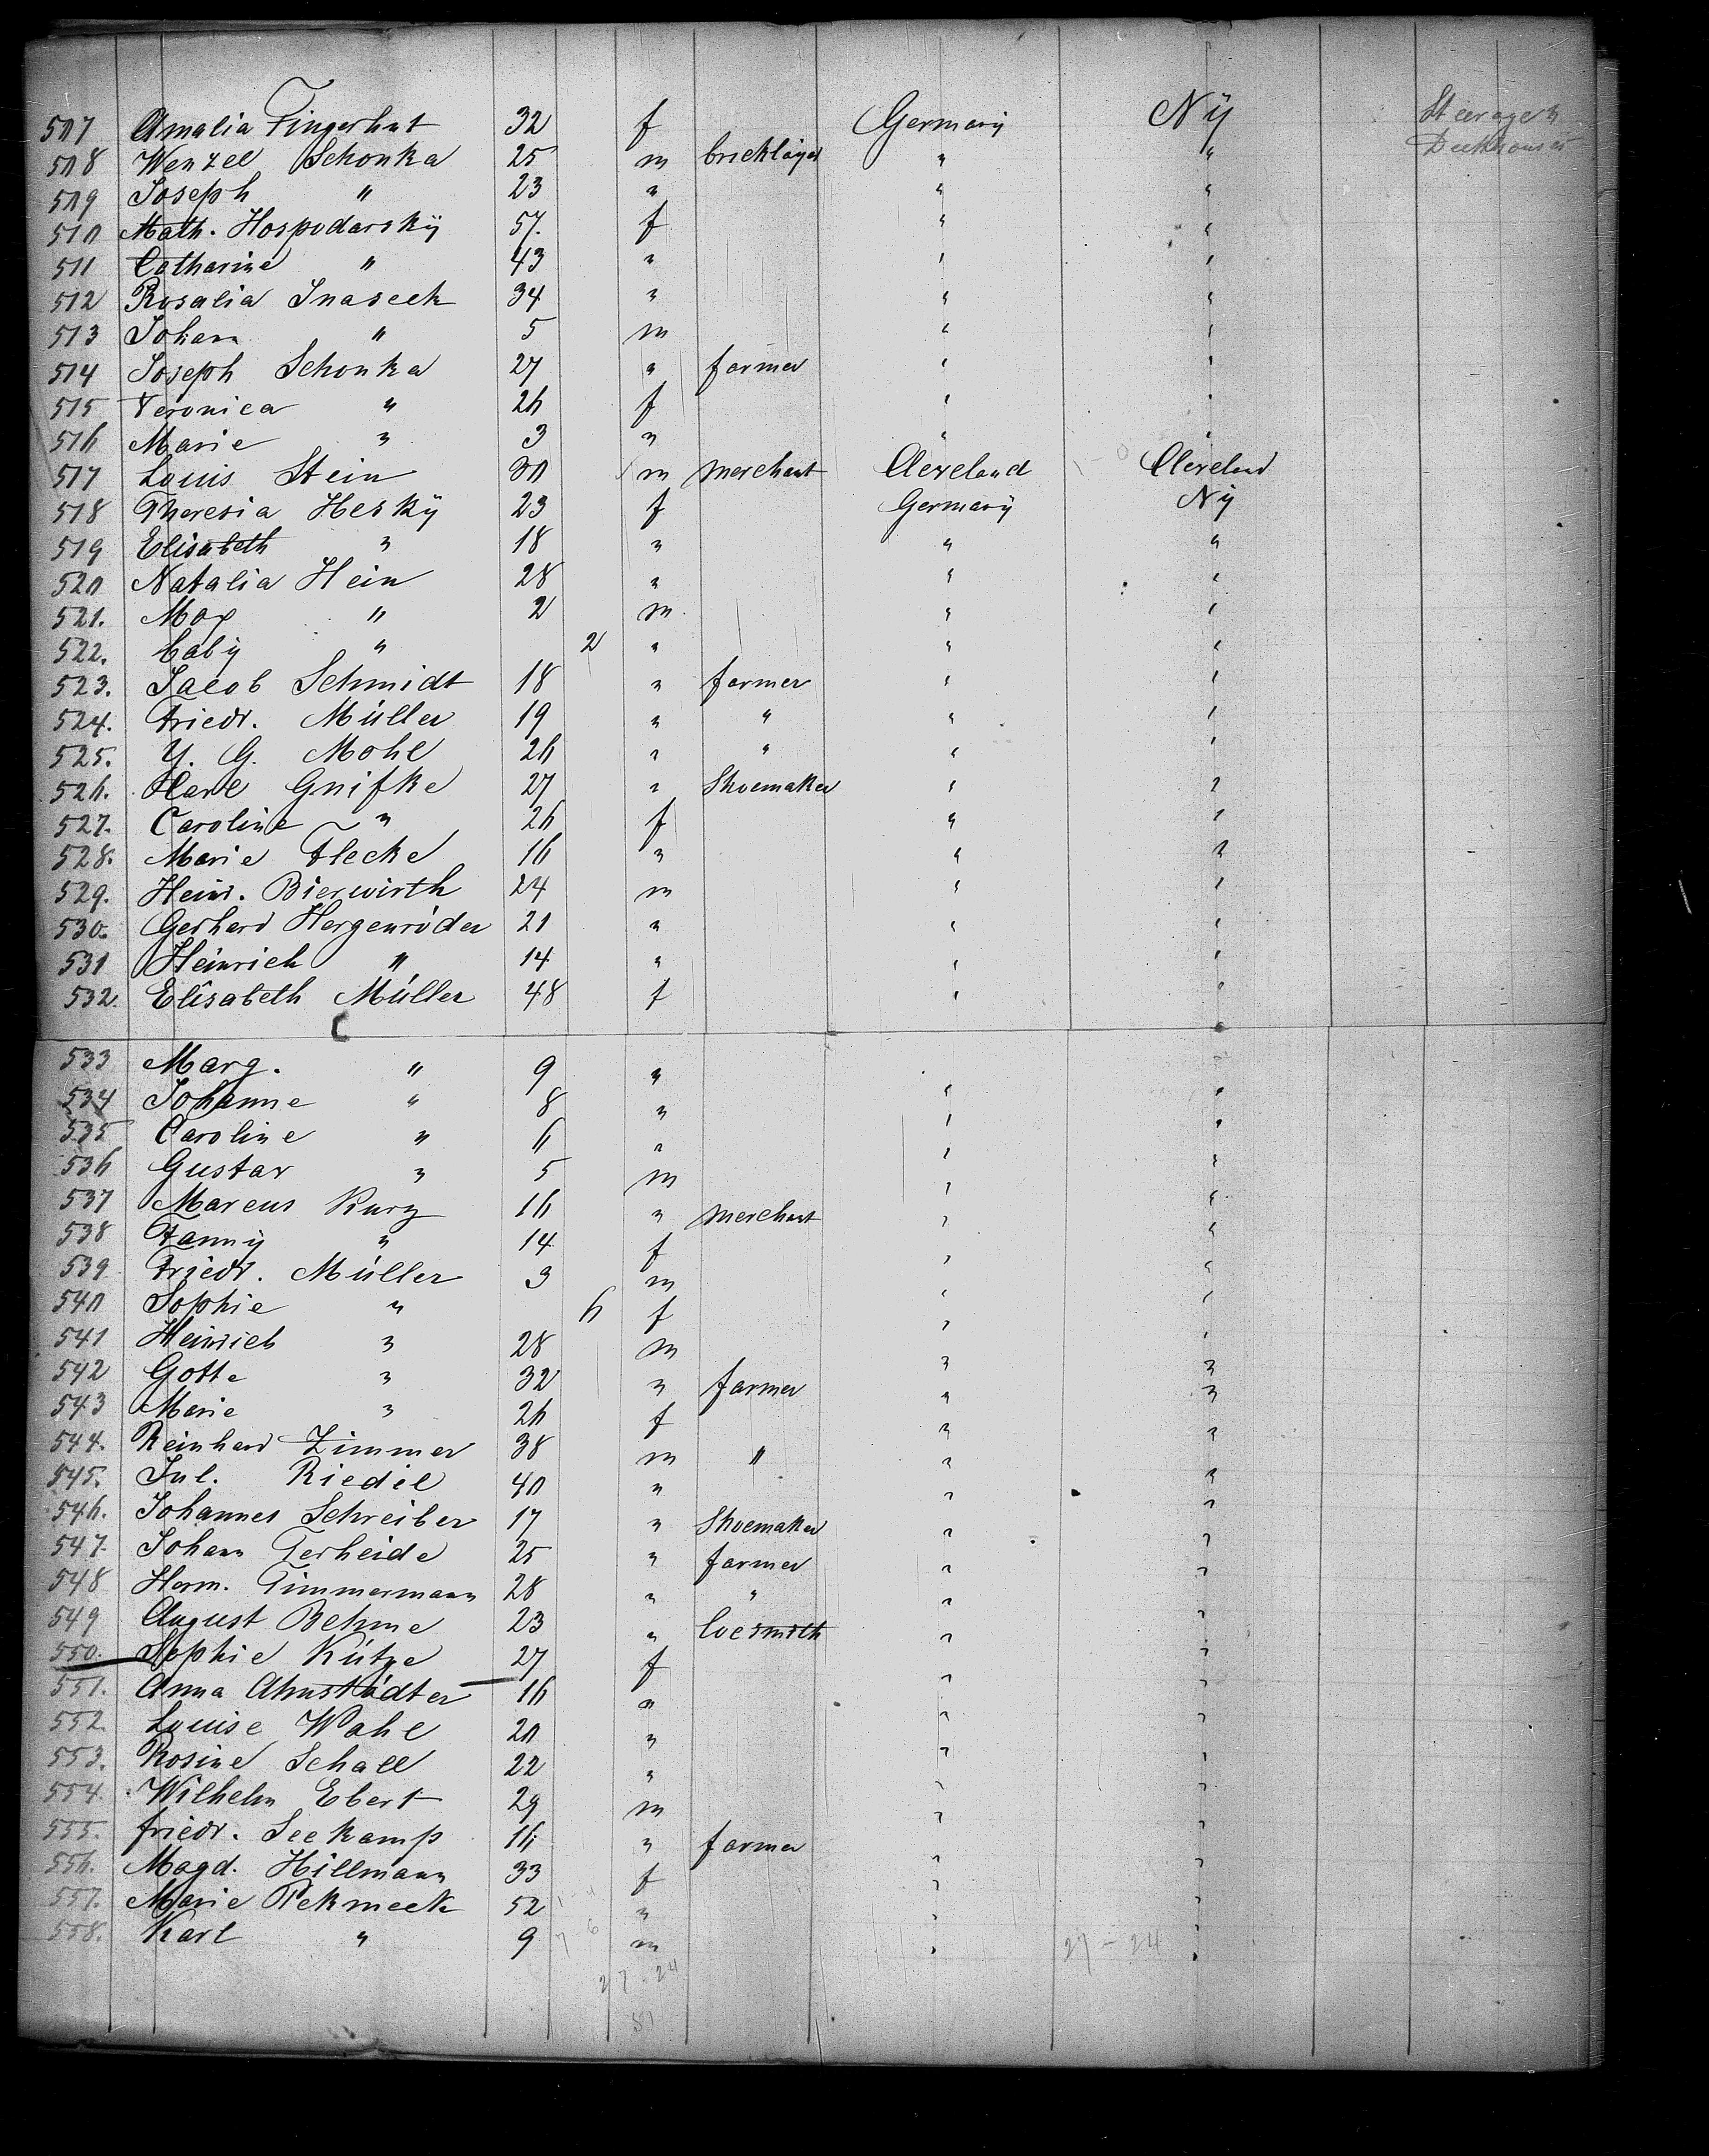 507 Amalia Fingerhut 32 f Germany Ny Steerage &
508 Wenzel Schonka 25 m bricklayer " " Deckhouses
509 Joseph " 23 " " "
510 Math. Hospodarsky 57. f " "
511 Catharine " 43 " " "
512 Rosalia Snaseck 34 " " "
513 Johann " 5 m " "
514 Joseph Schonka 27 " farmer " "
515 Veronica " 26 f " "
516 Marie " 3 " " "
517 Louis Stein 30 m merchant Cleveland Cleveland
518 Theresia Hesky 23 f Germany Ny
519 Elisabeth " 18 " " "
520 Natalia Hein 28 " " "
521. Max " 2 m " "
522. baby " 2 " " "
523. Jacob Schmidt 18 " farmer " "
524. Friedr. Müller 19 " " " "
525. Y. G. Mohl 26 " " " "
526. Karl Gnifke 27 " Shoemaker " "
527. Caroline " 26 f " "
528. Marie Flecke 16 " " "
529. Heinr. Bierwirth 24 m " "
530. Gerhard Hergenröder 21 " " "
531 Heinrich " 14 " " "
532. Elisabeth Müller 48 f " "
533 Marg. " 9 " " "
534 Johanne " 8 " " "
535 Caroline " 6 " " "
536 Gustav " 5 m " "
537 Marcus Kurz 16 " merchant " "
538 Fanny " 14 f " "
539 Friedr. Müller 3 m " "
540 Sophie " 6 f " "
541 Heinrich " 28 m " "
542 Gotte " 32 " farmer " "
543 Marie " 26 f " "
544. Reinhard Zimmer 38 m " " "
545. Jul. Riedel 40 " " "
546. Johannes Schreiber 17 " Shoemaker " "
547. Johann Terheide 25 " farmer " "
548 Herm. Timmermann 28 " " " "
549 August Behme 23 " " "
550. Sophie Kütze 27 f " "
551. Anna Ahnstädter 16 " " "
552. Louise Wahl 20 " " "
553. Rosine Schall 22 " " "
554. Wilhelm Ebert 29 m " "
555. friedr. Seekamp 16 " farmer " "
556. Magd. Hillmann 33 f " "
557. Marie Pekmeck 52 " " "
558. Karl " 9 m " "
27 - 24
27 - 24
51